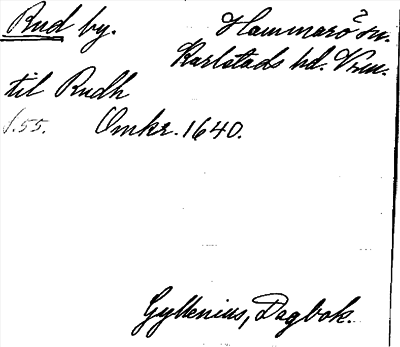 Rud by. Hammarö sn.
Karlstads hd. Vrm.
til Rudh
s.55. Omkr. 1640.
Gyllenius, Dagbok.